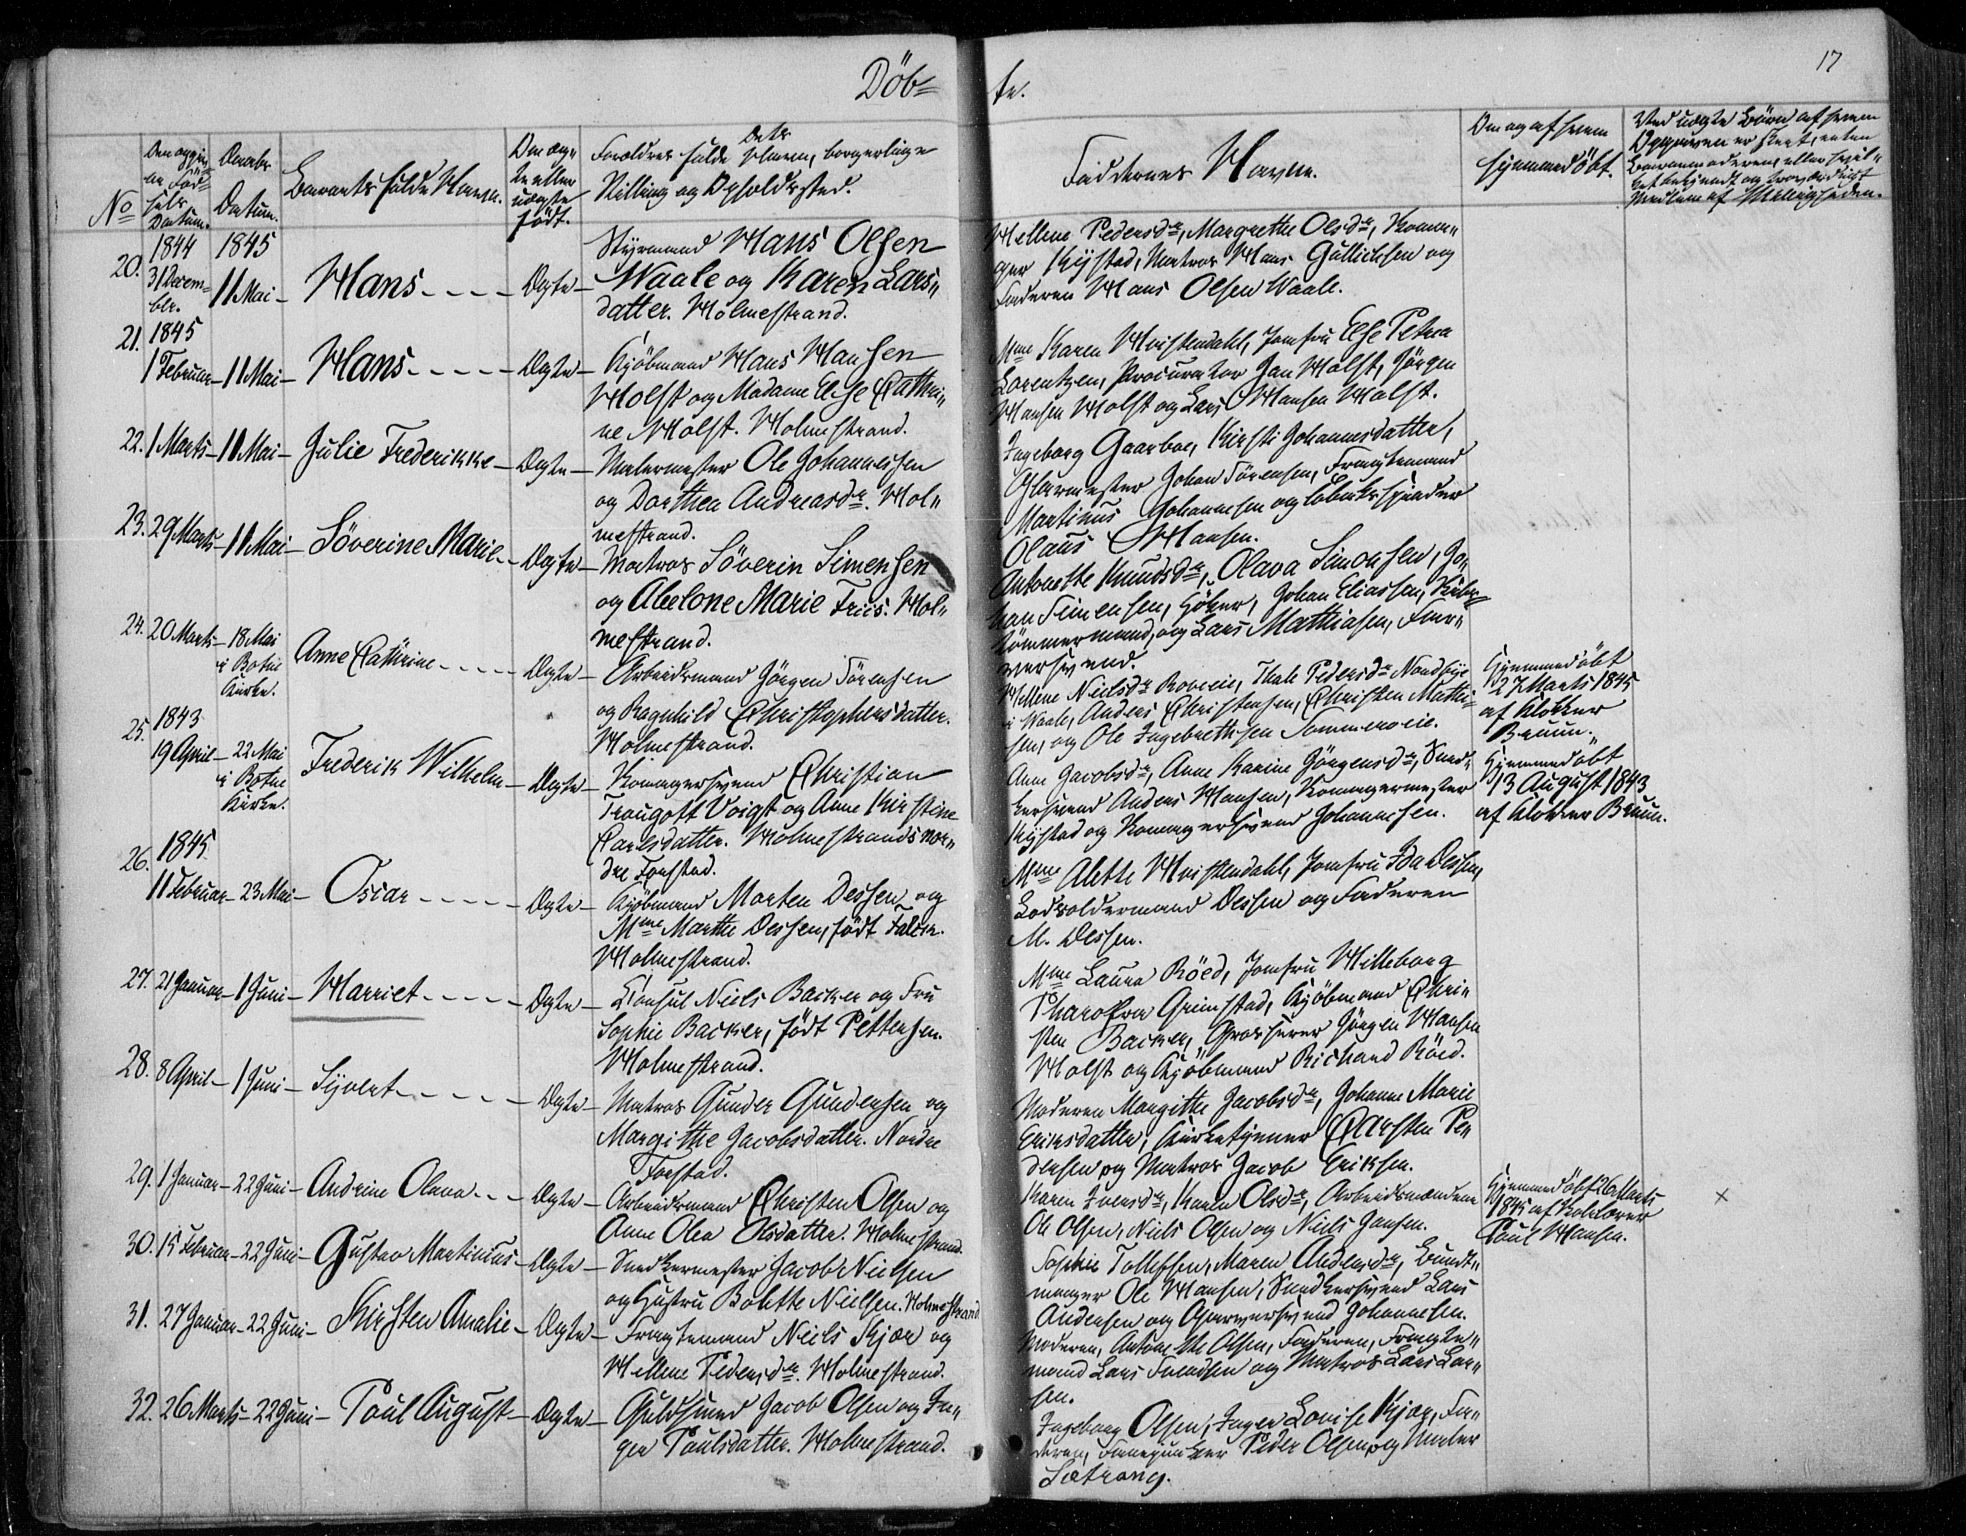 Döb=
te.
17
No
Den opgivne Fødsels Datum.
Daabs Datum.
Barnets fulde Navn.
Om ægte eller uægte født.
Forældres fulde Navn, borgerlige
Stilling og Opholdssted.
Faddernes Navne.
Om og af hvem
hjemmedöbt.
20. 1844 31 Decem=
ber.
1845 11 Mai
Hans
Ægte
Styrmand Hans Olsen
Waale og Karen Lars„
datter. Holmestrand.
Hellene Pedersdr, Margrethe Olsdr,
Kystad, Matros Hans Gullichsen og
Faderen Hans Olsen Waale.
21. 1845
1 Februar 11 Mai
Hans
Ægte
Kjöbmand Hans Hansen
Holst og Madame Else Cathri„
ne Holst. Holmestrand.
Mme Karen Hvistendahl, Jomfru Else Petrea
Lorentzen, Procurator Jan Holst, Jörgen
Hansen Holst og Lars Hansen Holst.
22. 1 Marts 11 Mai
Julie Frederikke
Ægte
Malermester Ole Johannessen
og Dorthea Andreasdr. Hol„
mestrand.
Ingeborg Gaarboe, Kirsti Johannesdatter,
Glarmester Johan Sörensen, Fragtemand
Martinus Johannesen og Tobaksspinder
Olaus Hansen.
23. 29 Marts 11 Mai
Söverine Marie
Ægte
Matros Söverin Simensen
og Abelone Marie Friis. Hol„
mestrand.
Antonette Knudsdr, Olava Simonsen, Jo„
han Simensen, Johan Eliassen,
Tömmermand, og Lars Mathiasen, Far„
versvend.
24. 20 Marts 18 Mai
i Botne
Kirke.
Anne Cathrine
Ægte
Arbeidsmand Jörgen Sörensen
og Ragnhild Christophersdatter.
Holmestrand.
Hellene Nielsdr Roveie, Thale Pedersdr Nordbye
i Waale, Anders Christensen, Christen Mathi„
sen, og Ole Ingebrethsen Sommeroeie.
Hjemmedöbt
27 Marts 1845
af Klokker
Bruun.
25. 1843
19 April 22 Mai
i Botne
Kirke.
Frederik Wilhelm
Ægte
Christian
Traugott Voigt og Anne Kirstine
Carlsdatter. Holmestrands nor„
dre Forstad.
Anne Jacobsdr, Anne Karine Jörgensdr, Sned„
kersvend Anders Hansen,
Kystad og Johannesen.
Hjemmedöbt
13 August 1843
af Klokker Bruun.
26. 1845
11 Februar 23 Mai
Oscar
Ægte
Kjöbmand Morten Dessen og
Mme Marthe Dessen, födt Falch.
Holmestrand.
Mme Alette Hvistendahl, Jomfru Ida Dessen,
Lodsoldermand Dessen og Faderen
M. Dessen.
27. 21 Januar 1 Juni
Harriet
Ægte
Consul Niels Backer og Fru
Sophie Backer, födt Pettersen.
Holmestrand.
Mme Laura Röed, Jomfru Hilleborg
Grimstad, Kjöbmand Chri„
sten Backer, Grosserer Jörgen Hansen
Holst og Kjöbmand Richard Röed.
28. 8 April 1 Juni
Syvert
Ægte
Matros Gunder Gundersen og
Margithe Jacobsdatter. Nordre
Forstad.
Moderen Margithe Jacobsdr, Johanne Marie
Eriksdatter, Kirketjener Carsten Pe„
dersen og Matros Jacob Eriksen.
29. 1 Januar 22 Juni
Andrine Olava
Ægte
Arbeidsmand Christen Olsen og
Anne Olea Olsdatter. Holmestrand.
Karen Iversdr, Karen Olsdr, Arbeidsmændene
Ole Olsen, Niels Olsen og Niels Jansen.
Hjemmedöbt 26 Marts
1845 af
Poul Hansen.
×
30. 15 Februar 22 Juni
Gustav Martinius
Ægte
Snedkermester Jacob Nielsen
og Hustru Bolette Nielsen. Holmestrand.
Sophie Tollefsen, Maren Andersdr, Bundt„
mager Ole Hansen, Snedkersvend Lars
Andersen og Garversvend Johannesen.
31. 27 Januar 22 Juni
Kirsten Amalie
Ægte
Fragtemand Niels Kjær og
Hellene Pedersdr. Holmestrand.
Moderen, Antonette Olsen, Faderen, Fragte„
mand Lars Svendsen og Matros Lars Lar„
sen.
32. 26 Marts 22 Juni
Poul August
Ægte
Guldsmed Jacob Olsen og In„
ger Poulsdatter. Holmestrand.
Ingeborg Olsen, Inger Louise Kjær, Fa„
deren, Peder Olsen og Maler
Sætrang.